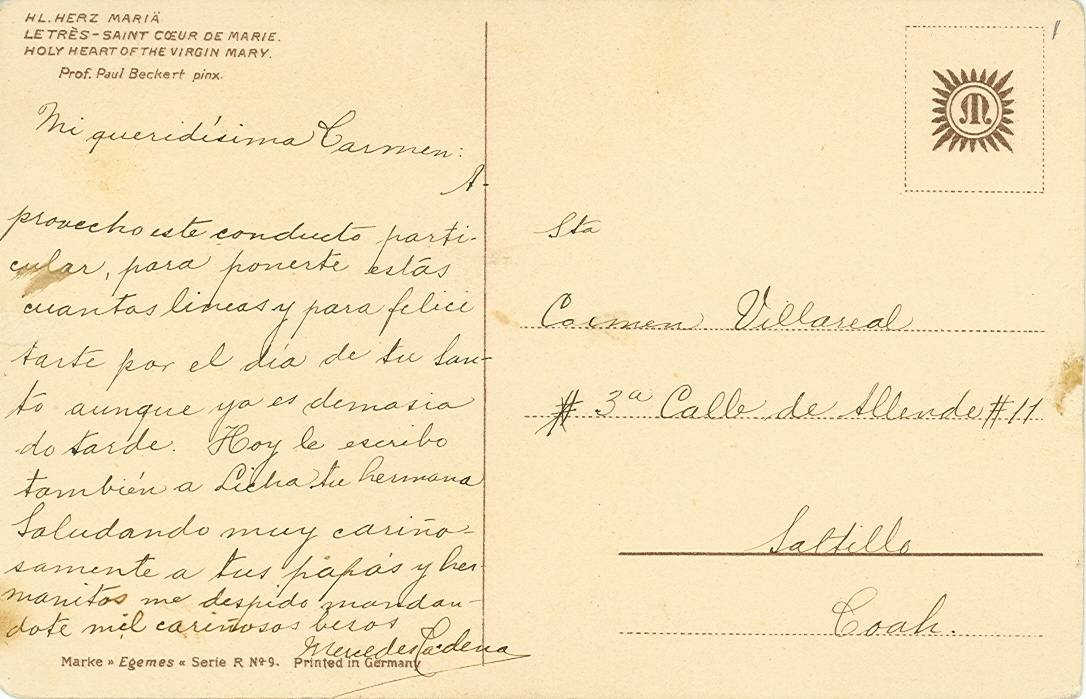 HL. HERZ MARIÄ
LE TRÈS-SAINT CŒUR DE MARIE.
HOLY HEART OF THE VIRGIN MARY.
Prof. Paul Beckert pinx.
Mi queridísima Carmen:
A-
provecho este conducto parti-
cular, para ponerte estás
cuantas lineas y para felici
tarte por el día de tu San-
to aunque ya es demasia
do tarde. Hoy le escribo
también a Licha tu hermana
Saludando muy cariño-
samente a tus papás y her-
manitos me despido mandan-
dote mil cariñosos besos
Mercedes Cadena
Marke » Egemes « Serie R Nº 9. Printed in Germany
M
Sta
Carmen Villareal
# 3a Calle de Allende #11
Saltillo
Coah.